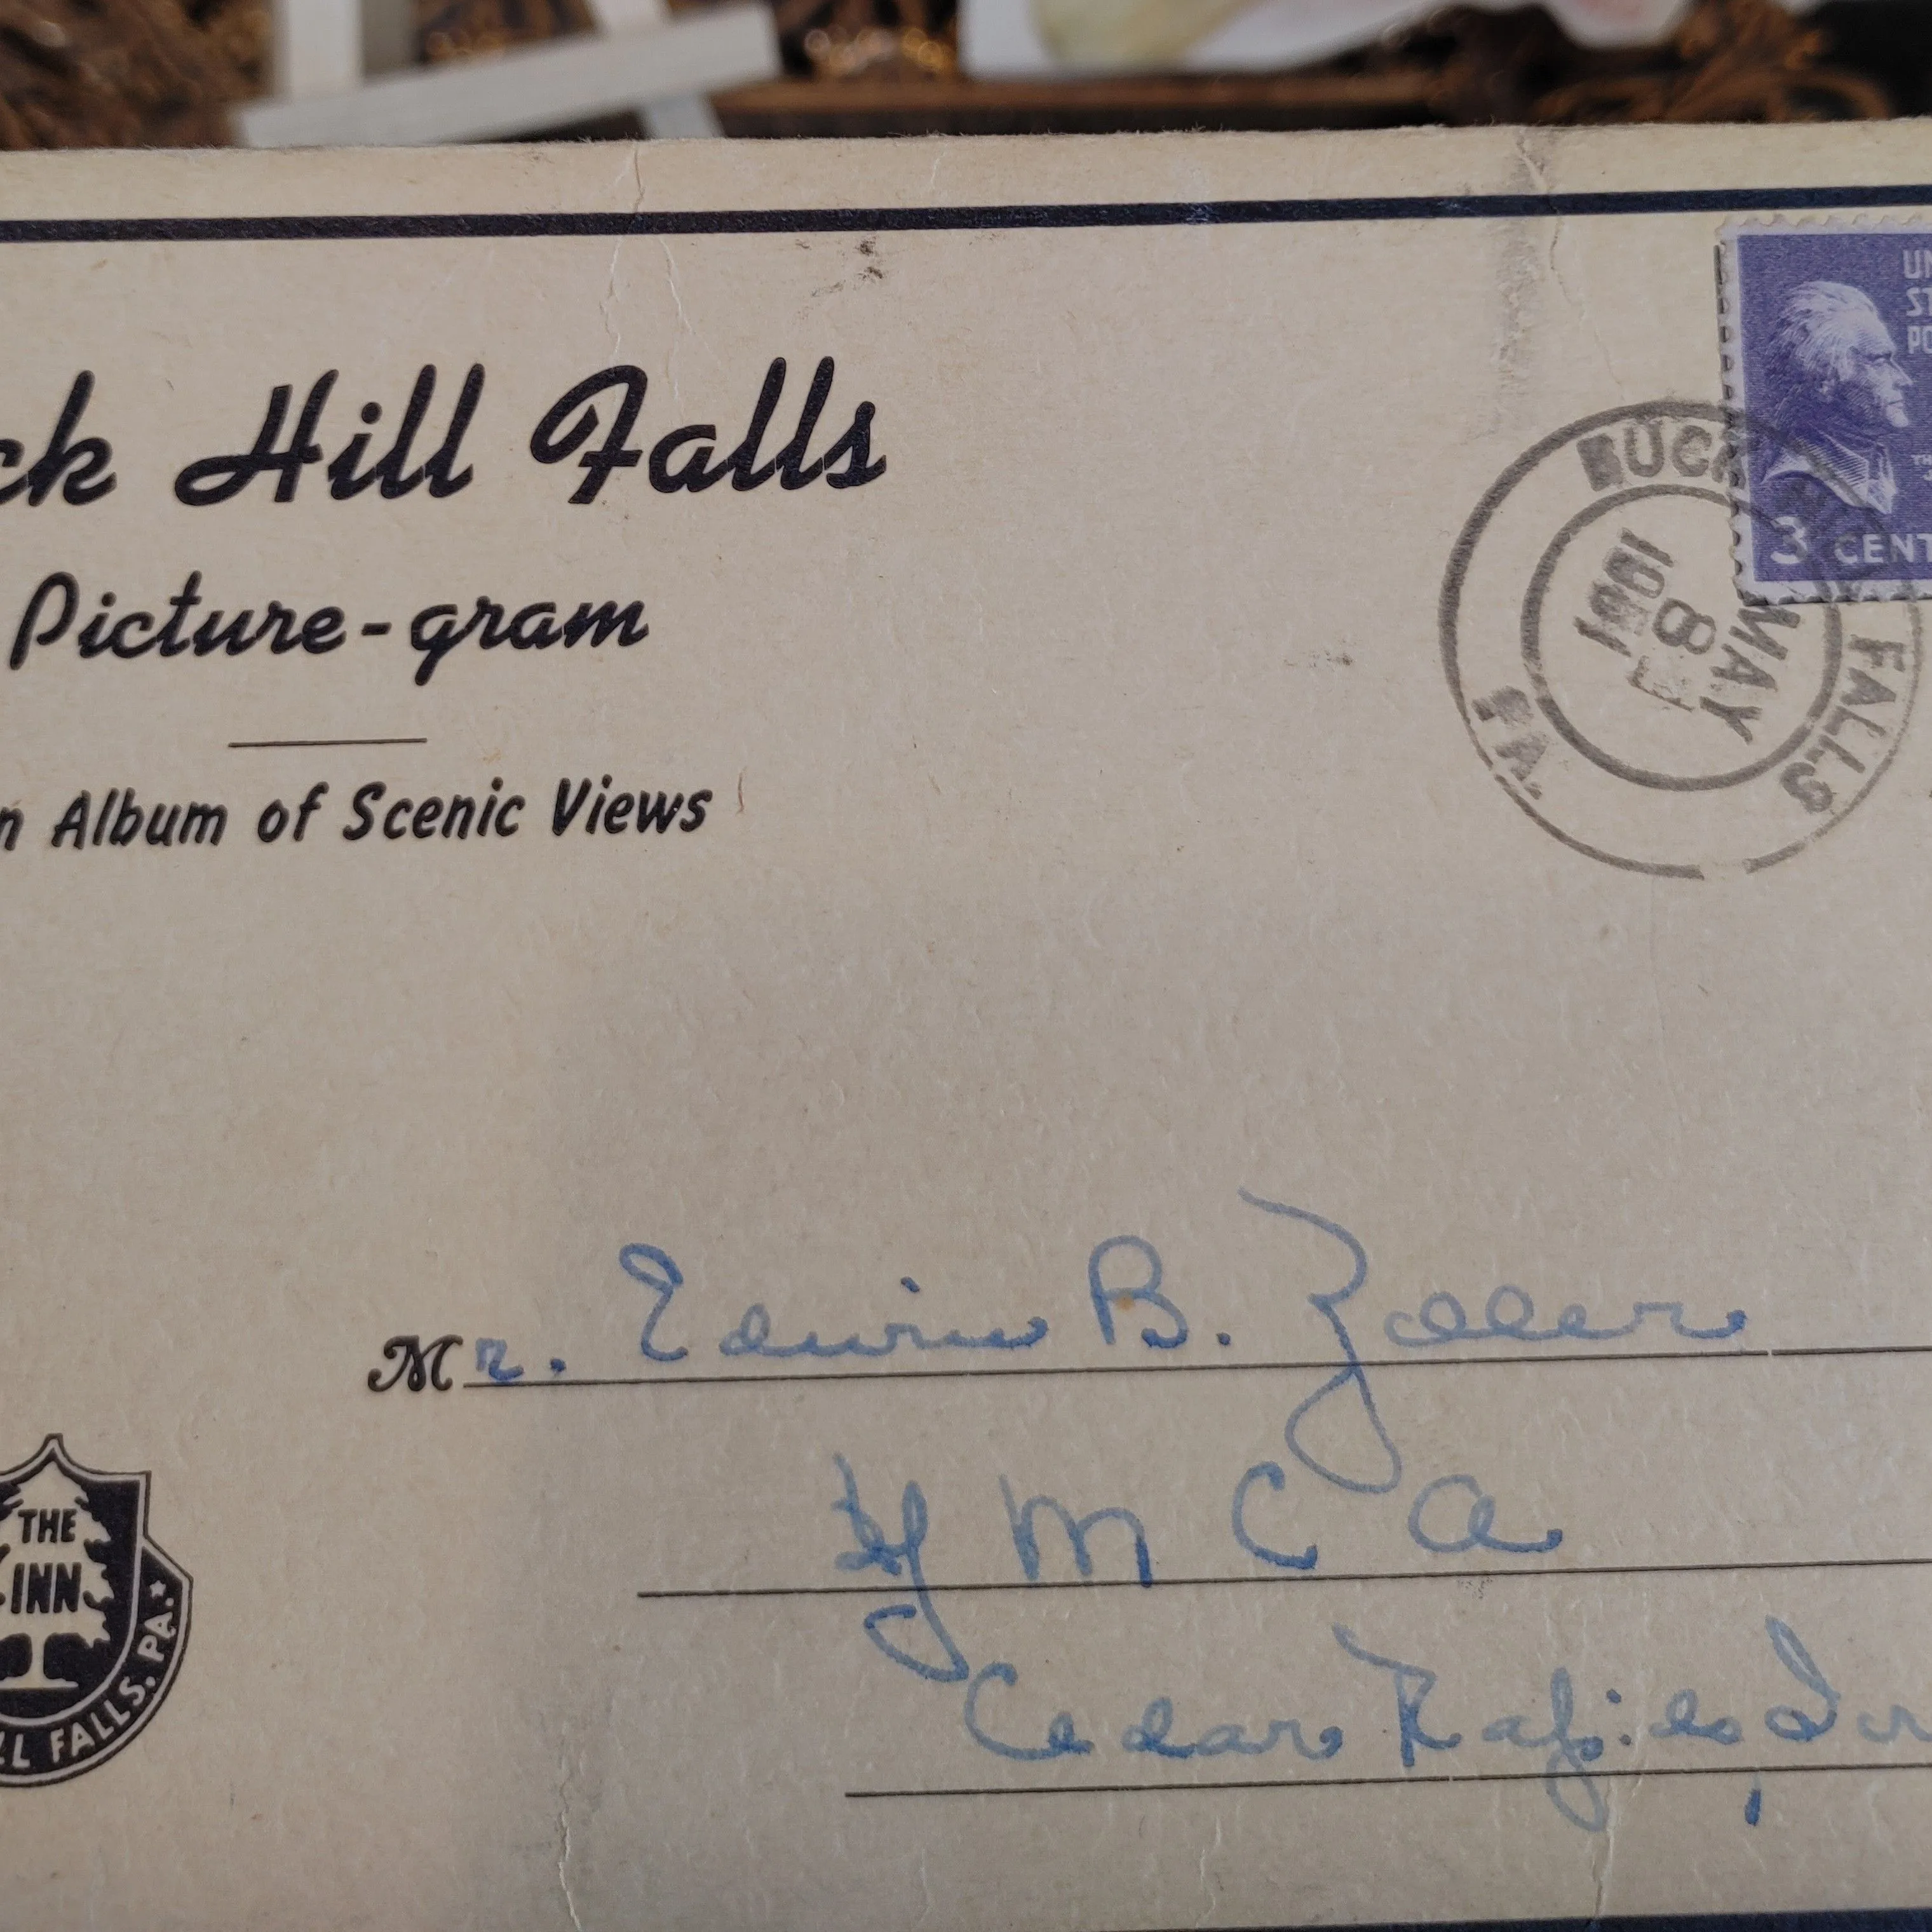 ck Hill Falls
Picture-gram
n Album of Scenic Views
UN
ST
PO
TH
3 CENT
BUCK FALLS
PA.
MAY
8
Mr. Edwin B. Zoller
Y M C A
Cedar Rapids, Iow
THE
INN
LL FALLS, PA.